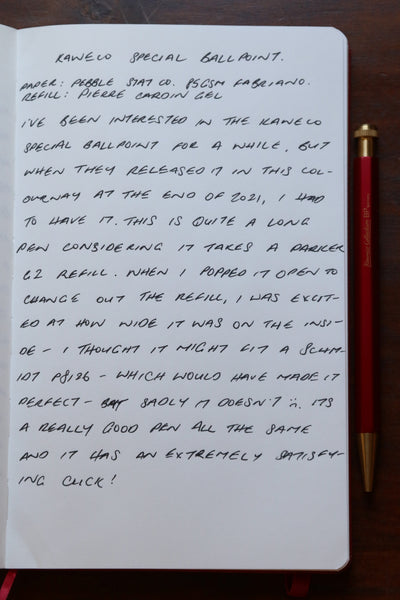 KAWECO SPECIAL BALLPOINT.
PAPER: PEBBLE STAT CO. 85GSM FABRIANO.
REFILL: PIERRE CARDIN GEL
I'VE BEEN INTERESTED IN THE KAWECO
SPECIAL BALLPOINT FOR A WHILE, BUT
WHEN THEY RELEASED IT IN THIS COL-
OURWAY AT THE END OF 2021, I HAD
TO HAVE IT. THIS IS QUITE A LONG
PEN CONSIDERING IT TAKES A PARKER
G2 REFILL. WHEN I POPPED IT OPEN TO
CHANGE OUT THE REFILL, I WAS EXCIT-
ED AT HOW WIDE IT WAS ON THE INSI-
DE - I THOUGHT IT MIGHT FIT A SCHM-
IDT P8126 - WHICH WOULD HAVE MADE IT
PERFECT - BUT SADLY IT DOESN'T :(. ITS
A REALLY GOOD PEN ALL THE SAME
AND IT HAS AN EXTREMELY SATISFY-
ING CLICK!
Kaweco Collection